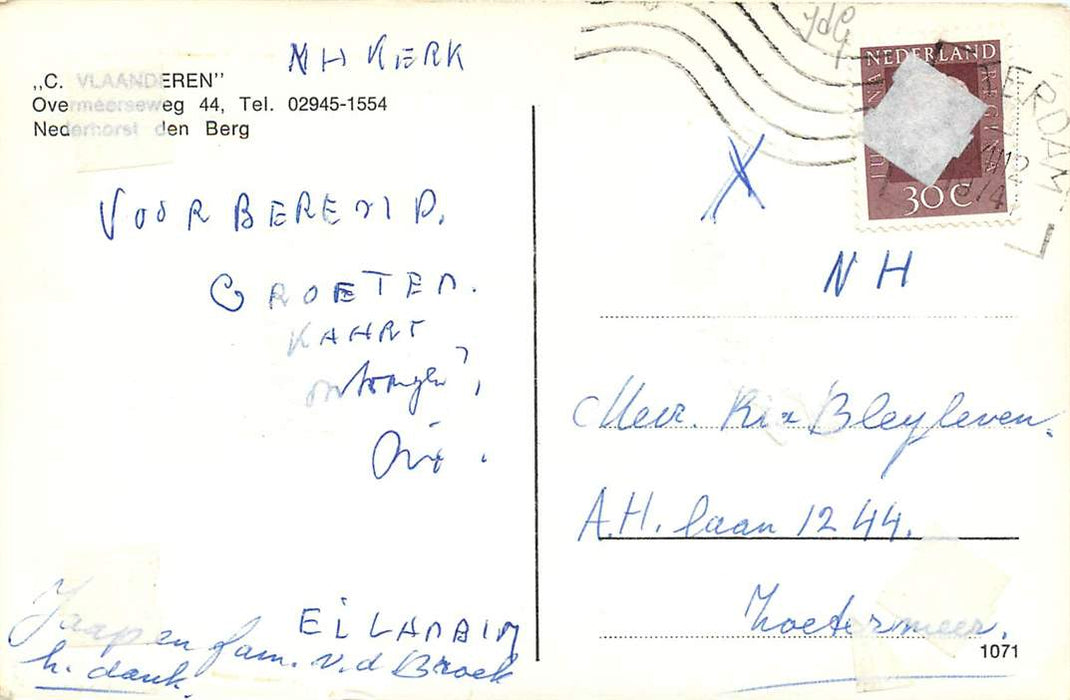 NH KERK
„C. VLAANDEREN”
Overmeerseweg 44, Tel. 02945-1554
Nederhorst den Berg
VOOR BEREMD.
GROETEN.
KAART
ontvangen?,
EILANDIN
Jaap en fam. v.d Broek
h. dank.
NEDERLAND
JULIANA REGINA
30 C
NH
Meur. Ria Bleyleven.
A.H. laan 1244.
Zoetermeer.
1071